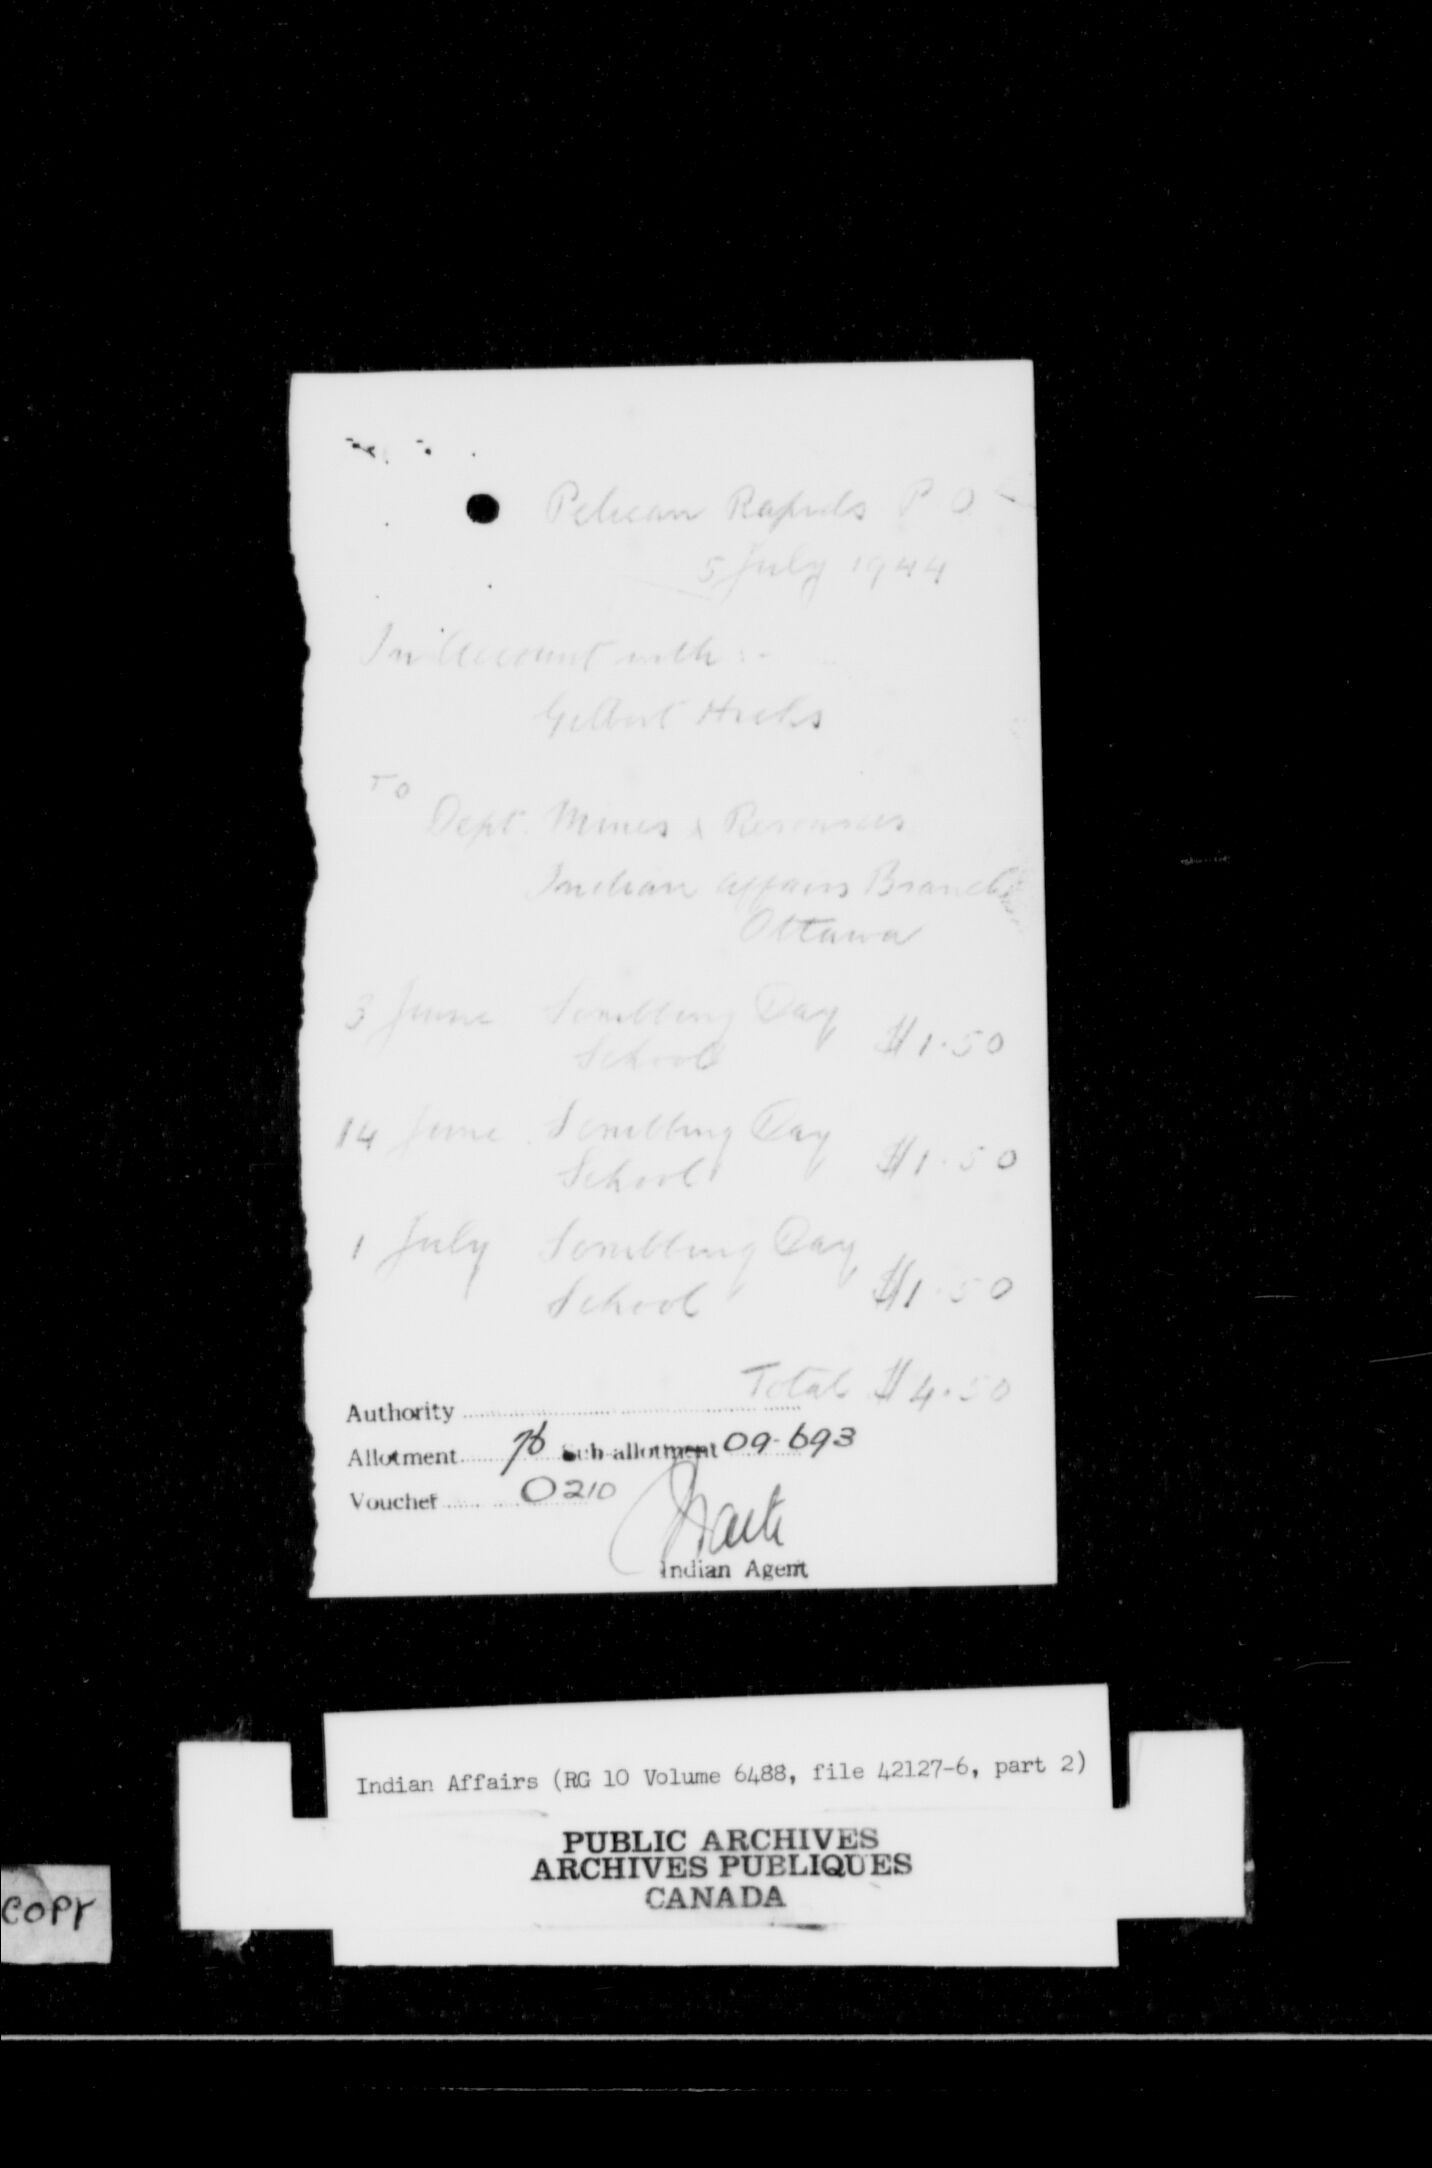 Pelican Rapids P.O.
5 July 1944
In account with :-
Gilbert Hicks
To
Dept. Mines & Resources
Indian Affairs Branch
Ottawa
3 June Scrubbing Day
School $1.50
14 June Scrubbing Day
School $1.50
1 July Scrubbing Day
School $1.50
Total $4.50
Authority
Allotment 76 Sub-allotment 09-693
Voucher 0210
Indian Agent
Indian Affairs (RG 10 Volume 6488, file 42127-6, part 2)
PUBLIC ARCHIVES
ARCHIVES PUBLIQUES
CANADA
COPY